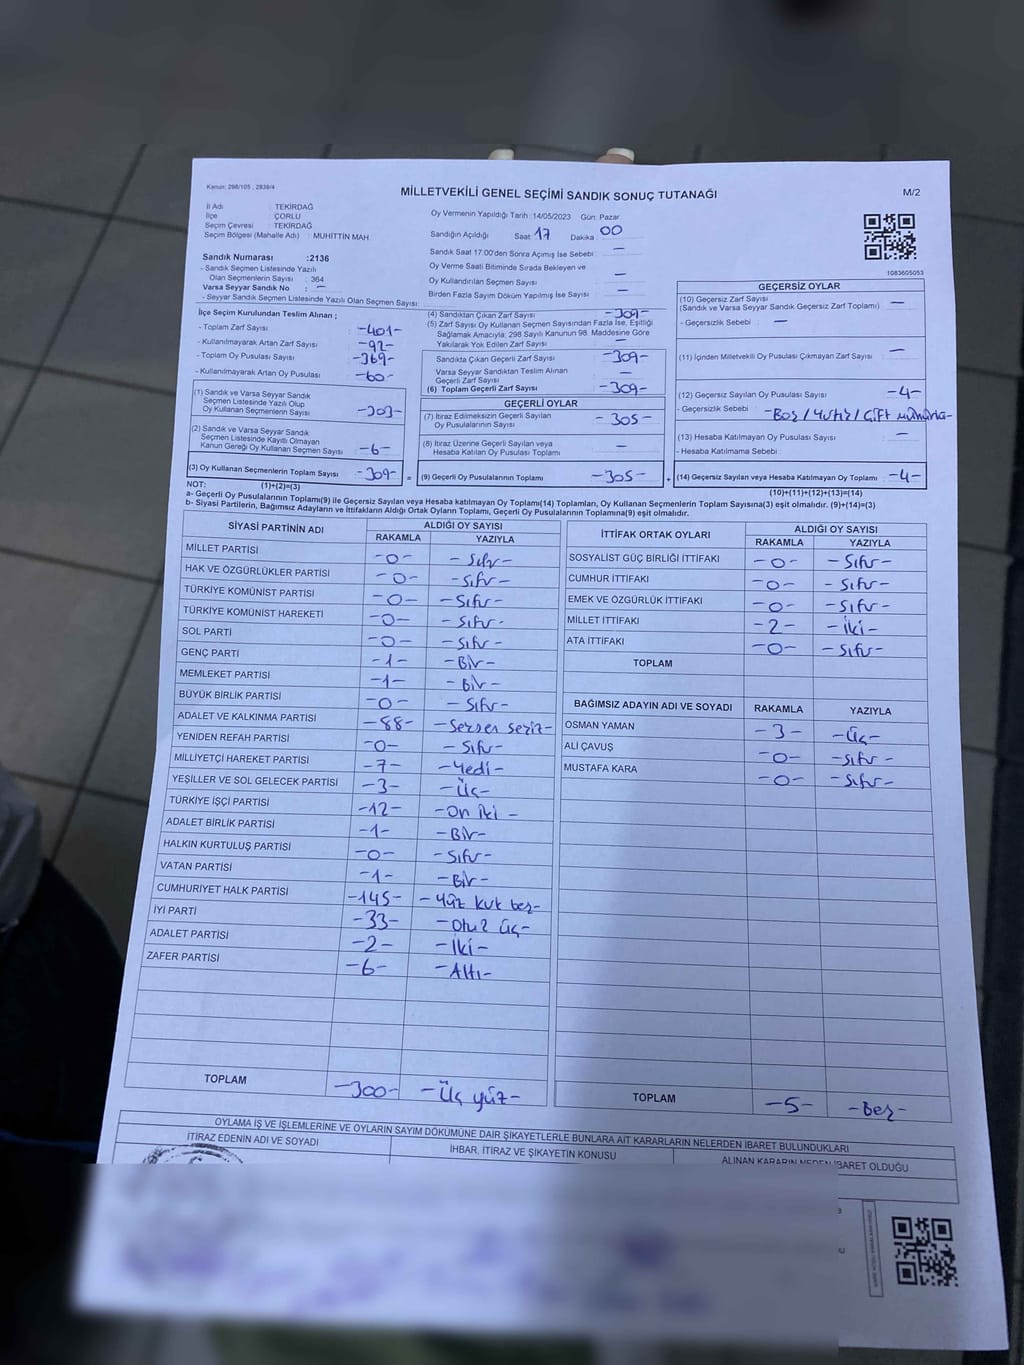 Kanun: 298/105 , 2839/4
MİLLETVEKİLİ GENEL SEÇİMİ SANDIK SONUÇ TUTANAĞI
M/2
İl Adı : TEKİRDAĞ
İlçe : ÇORLU
Seçim Çevresi : TEKİRDAĞ
Seçim Bölgesi (Mahalle Adı) : MUHİTTİN MAH
Sandık Numarası :2136
- Sandık Seçmen Listesinde Yazılı
Olan Seçmenlerin Sayısı : 364
Varsa Seyyar Sandık No : -
- Seyyar Sandık Seçmen Listesinde Yazılı Olan Seçmen Sayısı:
Oy Vermenin Yapıldığı Tarih :14/05/2023 Gün: Pazar
Sandığın Açıldığı Saat 17 Dakika 00
Sandık Saat 17:00'den Sonra Açımış İse Sebebi : -
Oy Verme Saati Bitiminde Sırada Bekleyen ve
Oy Kullandırılan Seçmen Sayısı : -
Birden Fazla Sayım Döküm Yapılmış İse Sayısı : -
1083605053
İlçe Seçim Kurulundan Teslim Alınan ;
- Toplam Zarf Sayısı : -401-
- Kullanılmayarak Artan Zarf Sayısı : -92-
- Toplam Oy Pusulası Sayısı : -369-
- Kullanılmayarak Artan Oy Pusulası : -60-
(1) Sandık ve Varsa Seyyar Sandık
Seçmen Listesinde Yazılı Olup
Oy Kullanan Seçmenlerin Sayısı : -303-
(2) Sandık ve Varsa Seyyar Sandık
Seçmen Listesinde Kayıtlı Olmayan
Kanun Gereği Oy Kullanan Seçmen Sayısı : -6-
(3) Oy Kullanan Seçmenlerin Toplam Sayısı : -309-
(4) Sandıktan Çıkan Zarf Sayısı : -309-
(5) Zarf Sayısı Oy Kullanan Seçmen Sayısından Fazla İse, Eşitliği
Sağlamak Amacıyla; 298 Sayılı Kanunun 98. Maddesine Göre
Yakılarak Yok Edilen Zarf Sayısı : -
Sandıkta Çıkan Geçerli Zarf Sayısı : -309-
Varsa Seyyar Sandıktan Teslim Alınan
Geçerli Zarf Sayısı : -
(6) Toplam Geçerli Zarf Sayısı : -309-
GEÇERLİ OYLAR
(7) İtiraz Edilmeksizin Geçerli Sayılan
Oy Pusulalarının Sayısı : -305-
(8) İtiraz Üzerine Geçerli Sayılan veya
Hesaba Katılan Oy Pusulası Toplamı : -
= (9) Geçerli Oy Pusulalarının Toplamı : -305-
GEÇERSİZ OYLAR
(10) Geçersiz Zarf Sayısı : -
(Sandık ve Varsa Seyyar Sandık Geçersiz Zarf Toplamı)
- Geçersizlik Sebebi : -
(11) İçinden Milletvekili Oy Pusulası Çıkmayan Zarf Sayısı : -
(12) Geçersiz Sayılan Oy Pusulası Sayısı : -4-
- Geçersizlik Sebebi : -Boş/Yırtık/Çift mühürlü-
(13) Hesaba Katılmayan Oy Pusulası Sayısı : -
- Hesaba Katılmama Sebebi :
+ (14) Geçersiz Sayılan veya Hesaba Katılmayan Oy Toplamı : -4-
NOT: (1)+(2)=(3)
(10)+(11)+(12)+(13)=(14)
a- Geçerli Oy Pusulalarının Toplamı(9) ile Geçersiz Sayılan veya Hesaba katılmayan Oy Toplamı(14) Toplamları, Oy Kullanan Seçmenlerin Toplam Sayısına(3) eşit olmalıdır. (9)+(14)=(3)
b- Siyasi Partilerin, Bağımsız Adayların ve İttifakların Aldığı Ortak Oyların Toplamı, Geçerli Oy Pusulalarının Toplamına(9) eşit olmalıdır.
SİYASİ PARTİNİN ADI ALDIĞI OY SAYISI
RAKAMLA YAZIYLA
MİLLET PARTİSİ -0- -Sıfır-
HAK VE ÖZGÜRLÜKLER PARTİSİ -0- -Sıfır-
TÜRKİYE KOMÜNİST PARTİSİ -0- -Sıfır-
TÜRKİYE KOMÜNİST HAREKETİ -0- -Sıfır-
SOL PARTİ -0- -Sıfır-
GENÇ PARTİ -1- -Bir-
MEMLEKET PARTİSİ -1- -Bir-
BÜYÜK BİRLİK PARTİSİ -0- -Sıfır-
ADALET VE KALKINMA PARTİSİ -88- -Seksen sekiz-
YENİDEN REFAH PARTİSİ -0- -Sıfır-
MİLLİYETÇİ HAREKET PARTİSİ -7- -Yedi-
YEŞİLLER VE SOL GELECEK PARTİSİ -3- -Üç-
TÜRKİYE İŞÇİ PARTİSİ -12- -On iki-
ADALET BİRLİK PARTİSİ -1- -Bir-
HALKIN KURTULUŞ PARTİSİ -0- -Sıfır-
VATAN PARTİSİ -1- -Bir-
CUMHURİYET HALK PARTİSİ -145- -Yüz kırk beş-
İYİ PARTİ -33- -Otuz üç-
ADALET PARTİSİ -2- -İki-
ZAFER PARTİSİ -6- -Altı-
TOPLAM -300- -Üç yüz-
İTTİFAK ORTAK OYLARI ALDIĞI OY SAYISI
RAKAMLA YAZIYLA
SOSYALİST GÜÇ BİRLİĞİ İTTİFAKI -0- -Sıfır-
CUMHUR İTTİFAKI -0- -Sıfır-
EMEK VE ÖZGÜRLÜK İTTİFAKI -0- -Sıfır-
MİLLET İTTİFAKI -2- -İki-
ATA İTTİFAKI -0- -Sıfır-
TOPLAM
BAĞIMSIZ ADAYIN ADI VE SOYADI RAKAMLA YAZIYLA
OSMAN YAMAN -3- -Üç-
ALİ ÇAVUŞ -0- -Sıfır-
MUSTAFA KARA -0- -Sıfır-
TOPLAM -5- -Beş-
OYLAMA İŞ VE İŞLEMLERİNE VE OYLARIN SAYIM DÖKÜMÜNE DAİR ŞİKAYETLERLE BUNLARA AİT KARARLARIN NELERDEN İBARET BULUNDUKLARI
İTİRAZ EDENİN ADI VE SOYADI
İHBAR, İTİRAZ VE ŞİKAYETİN KONUSU
ALINAN KARARIN NEDEN İBARET OLDUĞU